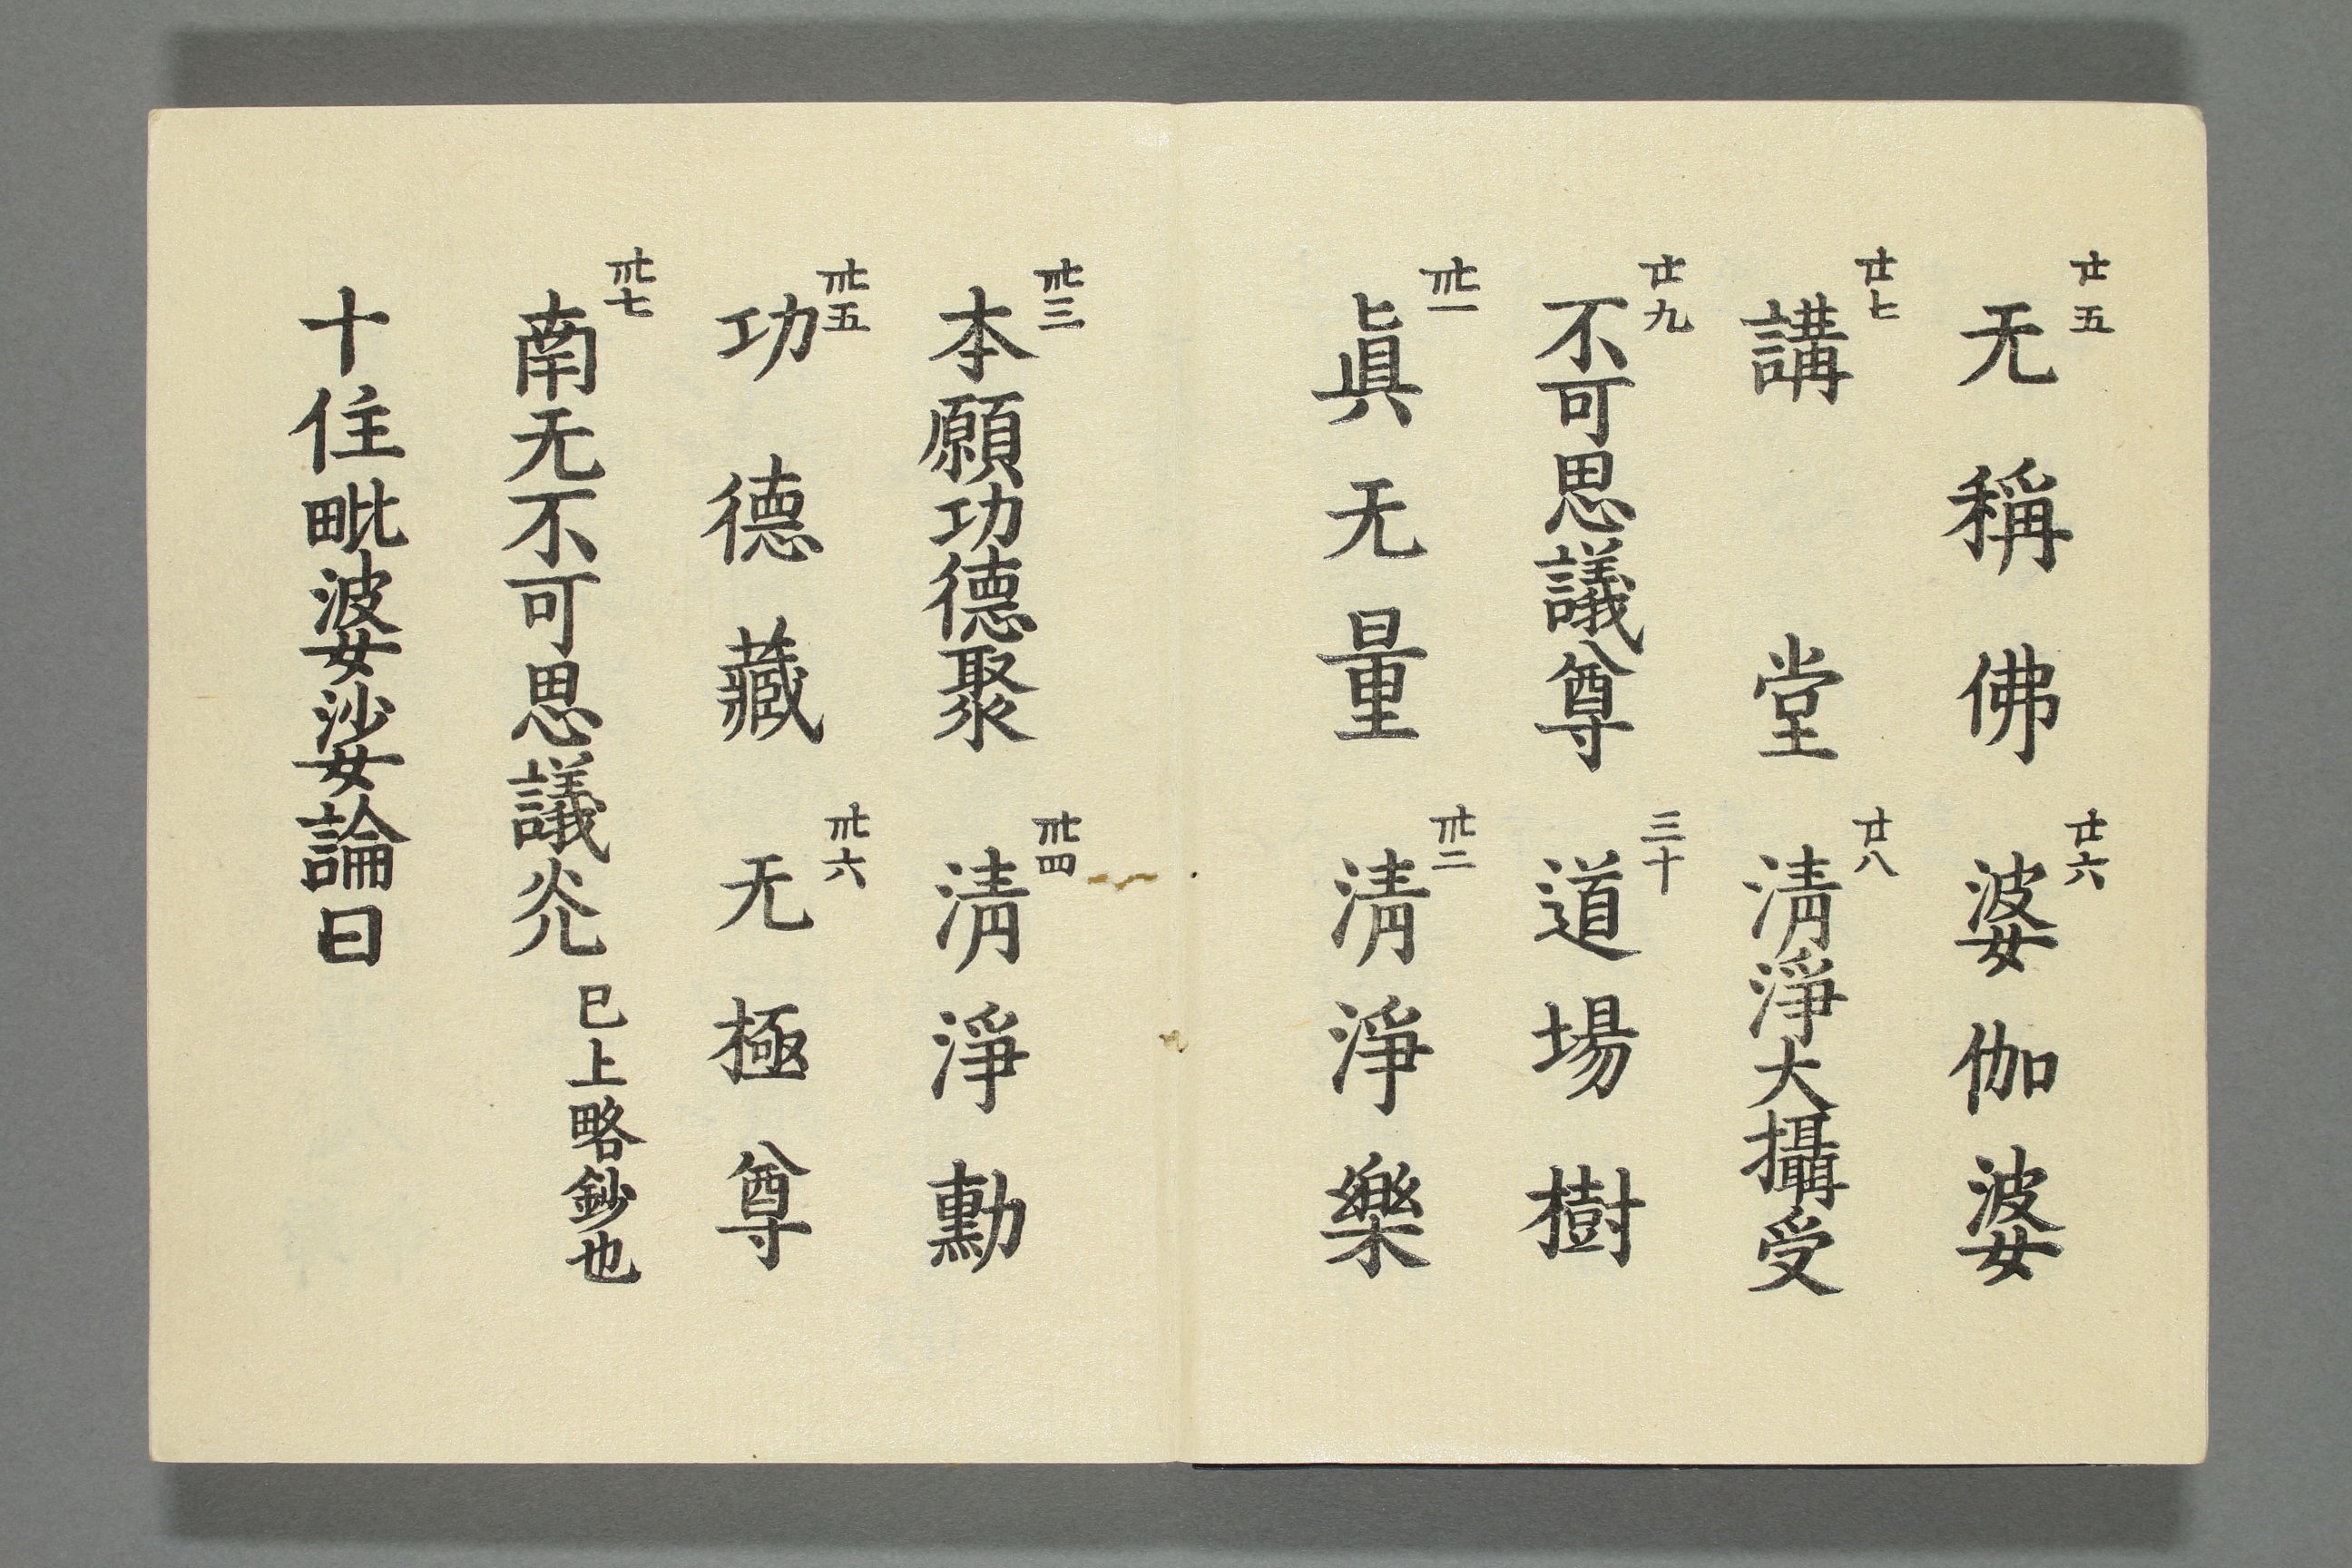 廿五 无稱佛 廿六 婆伽婆
廿七 講堂 廿八 清淨大攝受
廿九 不可思議尊 三十 道場樹
卅一 眞无量 卅二 清淨樂
卅三 本願功德聚 卅四 清淨勳
卅五 功德藏 卅六 无極尊
卅七 南无不可思議灮 已上略鈔也
十住毗婆沙婆論曰